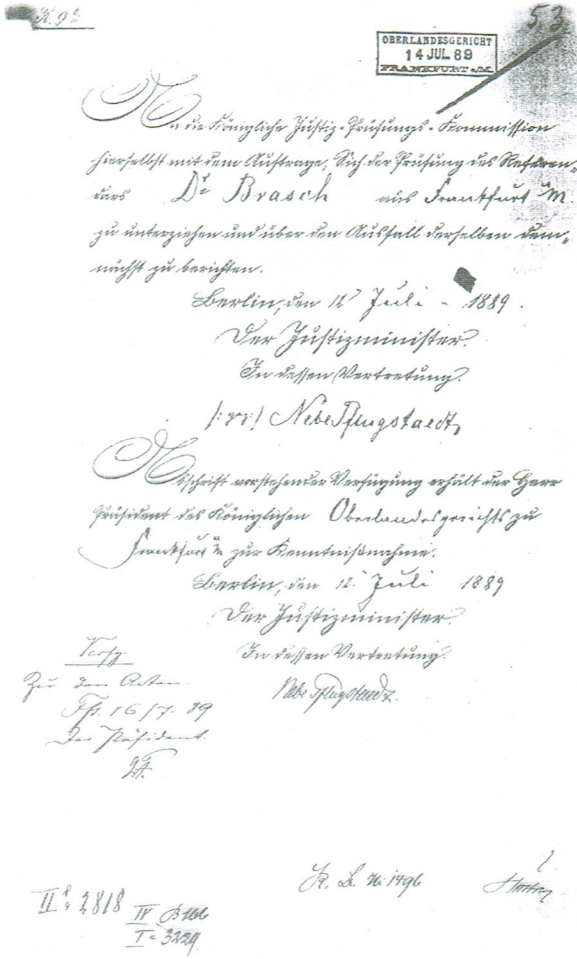 K. 9
53.
OBERLANDESGERICHT
14 JUL 89
FRANKFURT a/M.
An die Königliche Justiz-Prüfungs-Kommission
hierselbst mit dem Auftrage, sich der Prüfung des Referen-
dars Dr Brasch aus Frankfurt a/M
zu unterziehen und über den Ausfall derselben dem-
nächst zu berichten.
Berlin, den 12 Juli 1889.
Der Justizminister.
In dessen Vertretung.
(:gez:) Nebe Pflugstaedt,
Abschrift vorstehender Verfügung erhält der Herr
Präsident des Königlichen Oberlandesgerichts zu
Frankfurt a/M zur Kenntnißnahme.
Berlin, den 12. Juli 1889
Der Justizminister.
In dessen Vertretung.
Nebe Pflugstaedt.
Verfg
Zu den Acten.
Fft. 16/7. 89
Der Präsident.
II 2818
IV
I 3229